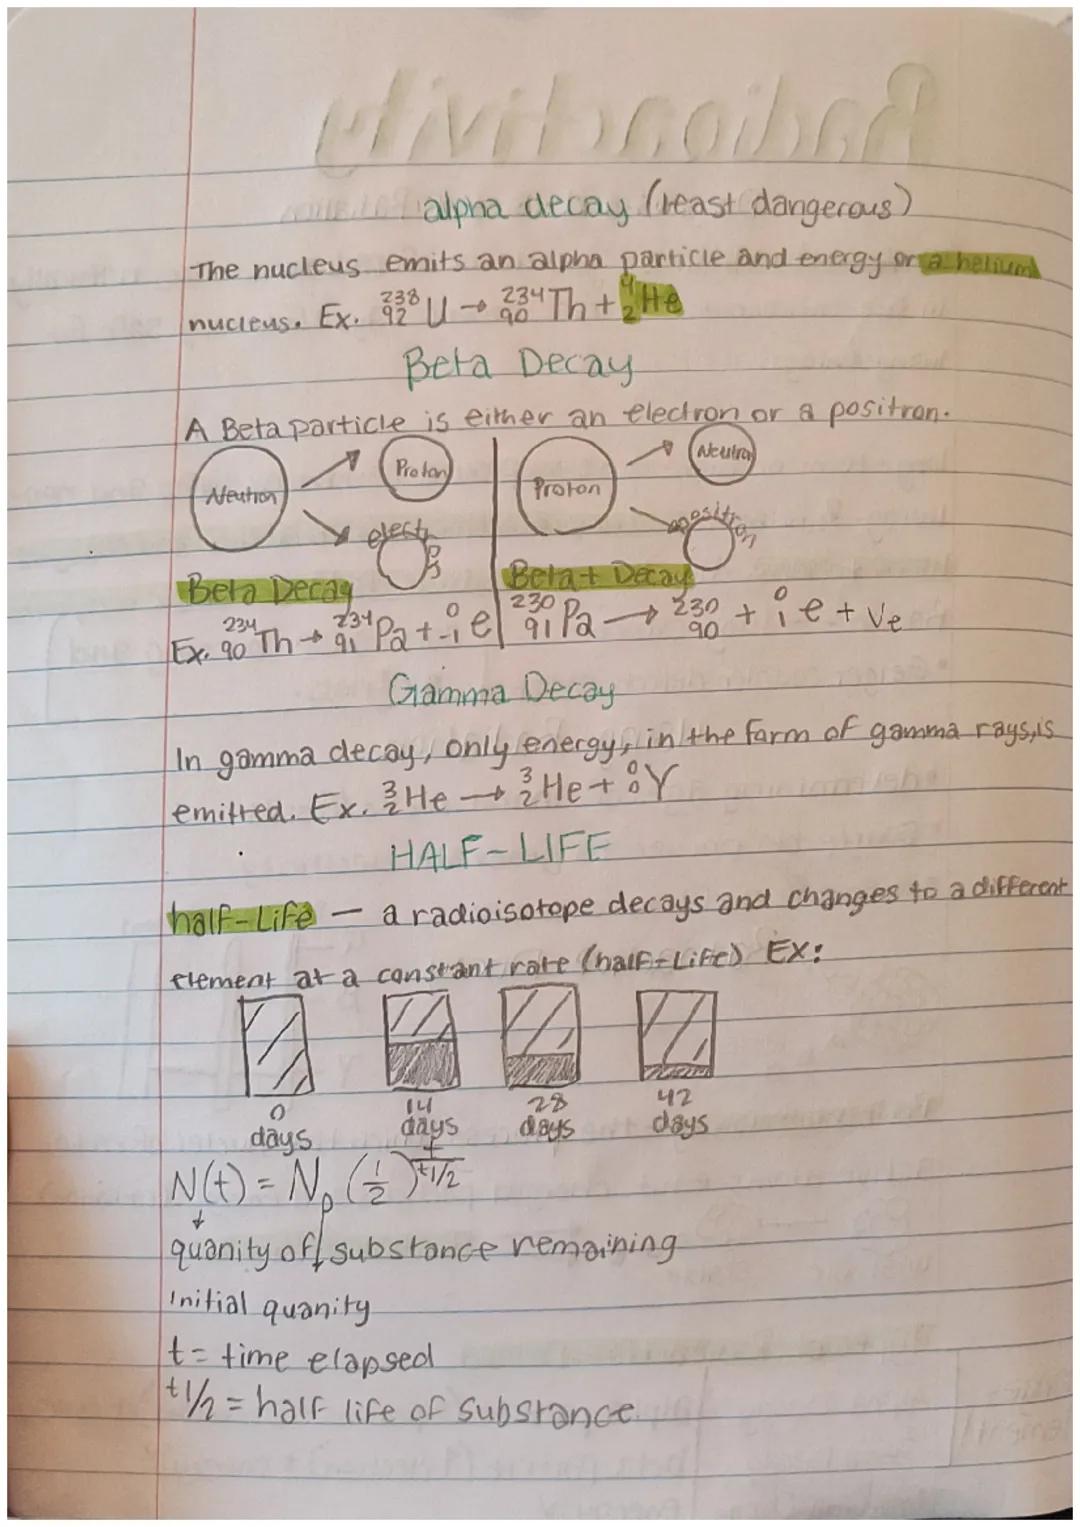 Radioactivity
alpha decay (least dangerous)
The nucleus emits an alpha particle and energy or a helium
nucleus. Ex. ²³⁸₉₂U → ²³⁴₉₀Th + ⁴₂He
Beta Decay
A Beta particle is either an electron or a positron.
Neutron Proton electron | Proton Neutron positron
Beta Decay | Beta+ Decay
Ex. ²³⁴₉₀Th → ²³⁴₉₁Pa + ⁰₋₁e | ²³⁰₉₁Pa → ²³⁰₉₀ + ⁰₁e + Ve
Gamma Decay
In gamma decay, only energy, in the form of gamma rays, is
emitted. Ex. ³₂He → ³₂He + ⁰₀γ
HALF-LIFE
half-Life — a radioisotope decays and changes to a different
element at a constant rate (half-Life) EX:
0 days 14 days 28 days 42 days
N(t) = N₀ (1/2)^(t/t1/2)
quanity of substance remaining
Initial quanity
t = time elapsed
t1/2 = half life of substance